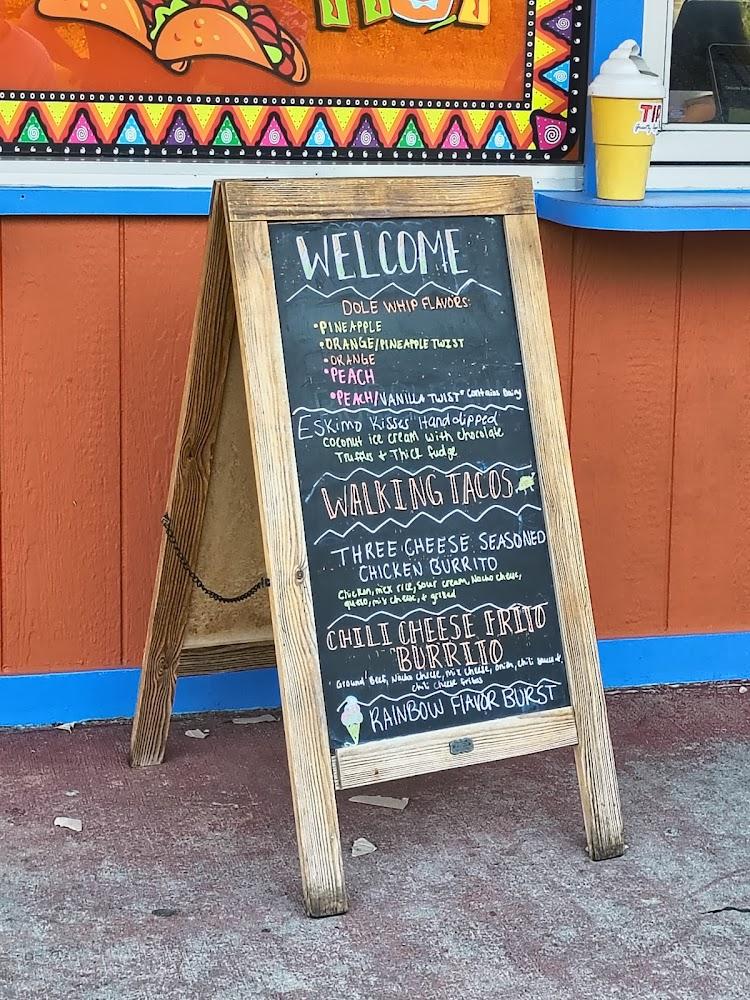 TIP
WELCOME
DOLE WHIP FLAVORS:
•PINEAPPLE
•ORANGE/PINEAPPLE TWIST
•ORANGE
•PEACH
•PEACH/VANILLA TWIST* Contains Dairy
ESKIMO KISSES Handdipped
Coconut ice cream with chocolate
Truffles + Thick fudge
WALKING TACOS
THREE CHEESE SEASONED
CHICKEN BURRITO
Chicken, mex rice, sour cream, Nacho cheese,
queso, mix cheese, + grilled
CHILI CHEESE FRITO
BURRITO
Ground Beef, Nacho cheese, mix cheese, onion, chili sauce +
chili cheese fritos
RAINBOW FLAVOR BURST